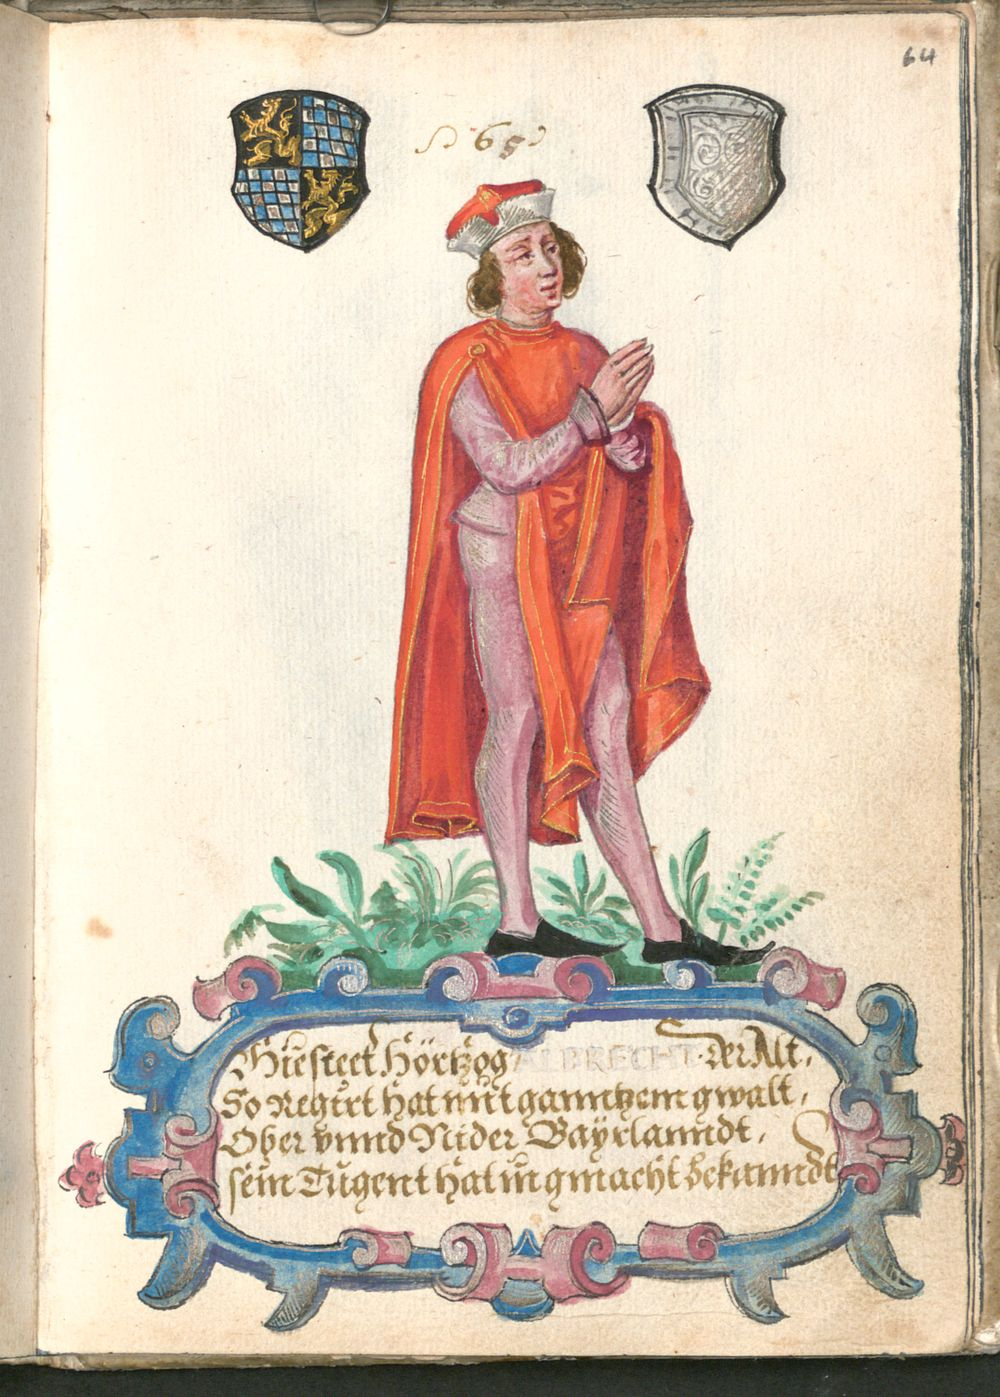 64
65
Hie steet Hörtzog ALBRECHT der Alt,
So Regirt hat mit ganntzem gwalt,
Ober vnnd Nider Bayrlanndt,
sein Tugent hat in gmacht bekanndt